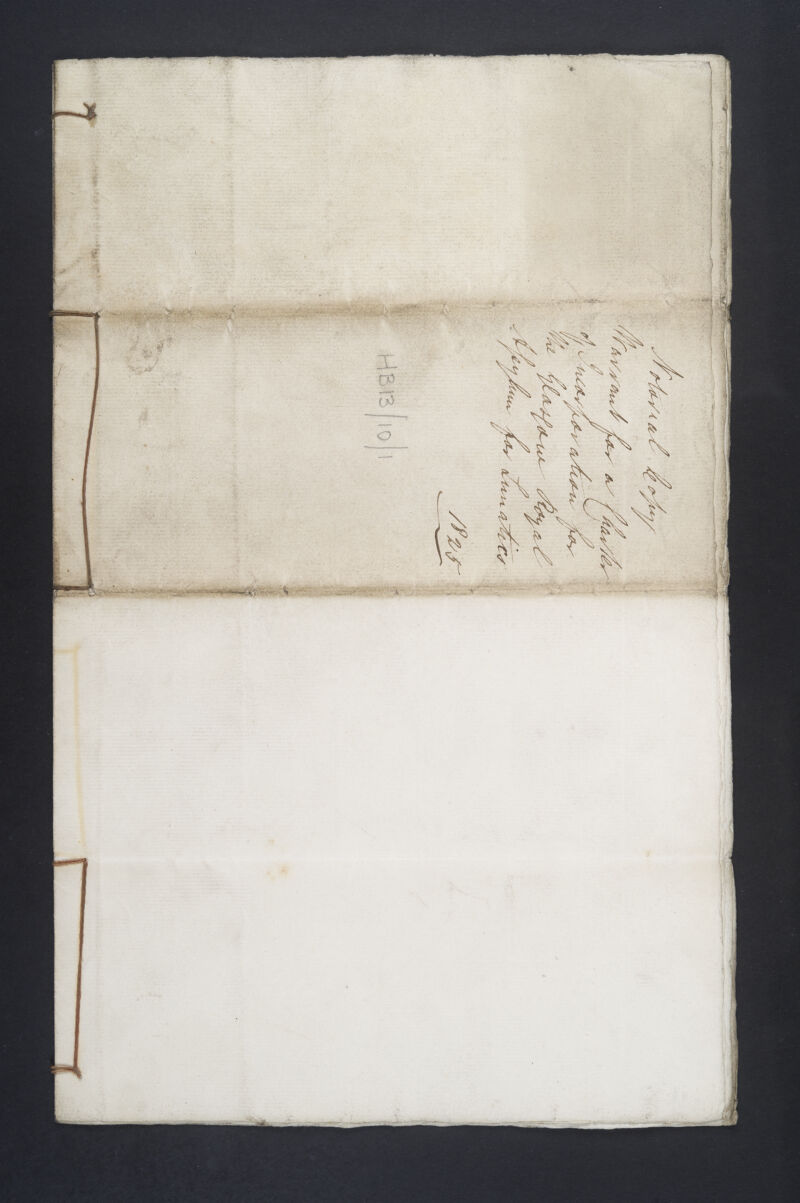 Notorial Copy
Warrant for a Charter
of Incorporation for
the Glasgow Royal
Asylum for Lunatics
1825
HB13/10/1